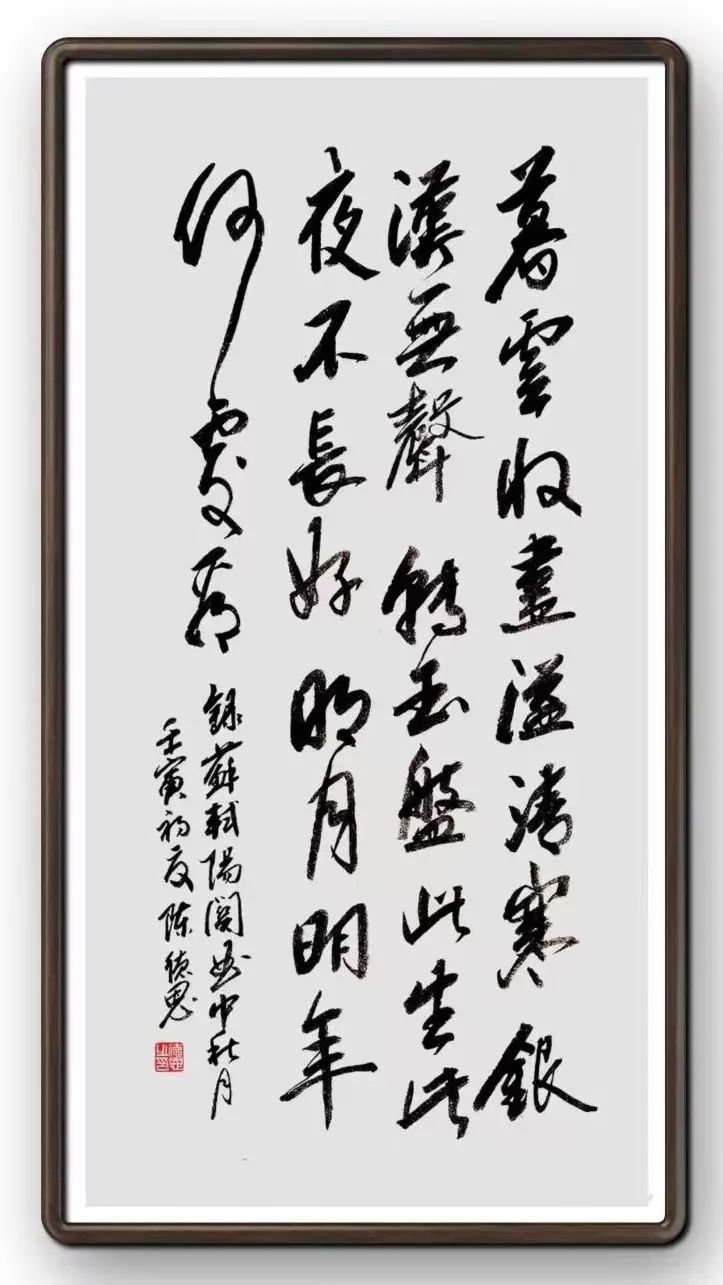 暮雲收盡溢清寒銀
漢無聲轉玉盤此生此
夜不長好明月明年
何處看
録蘇軾陽關曲中秋月
壬寅初夏陈德思